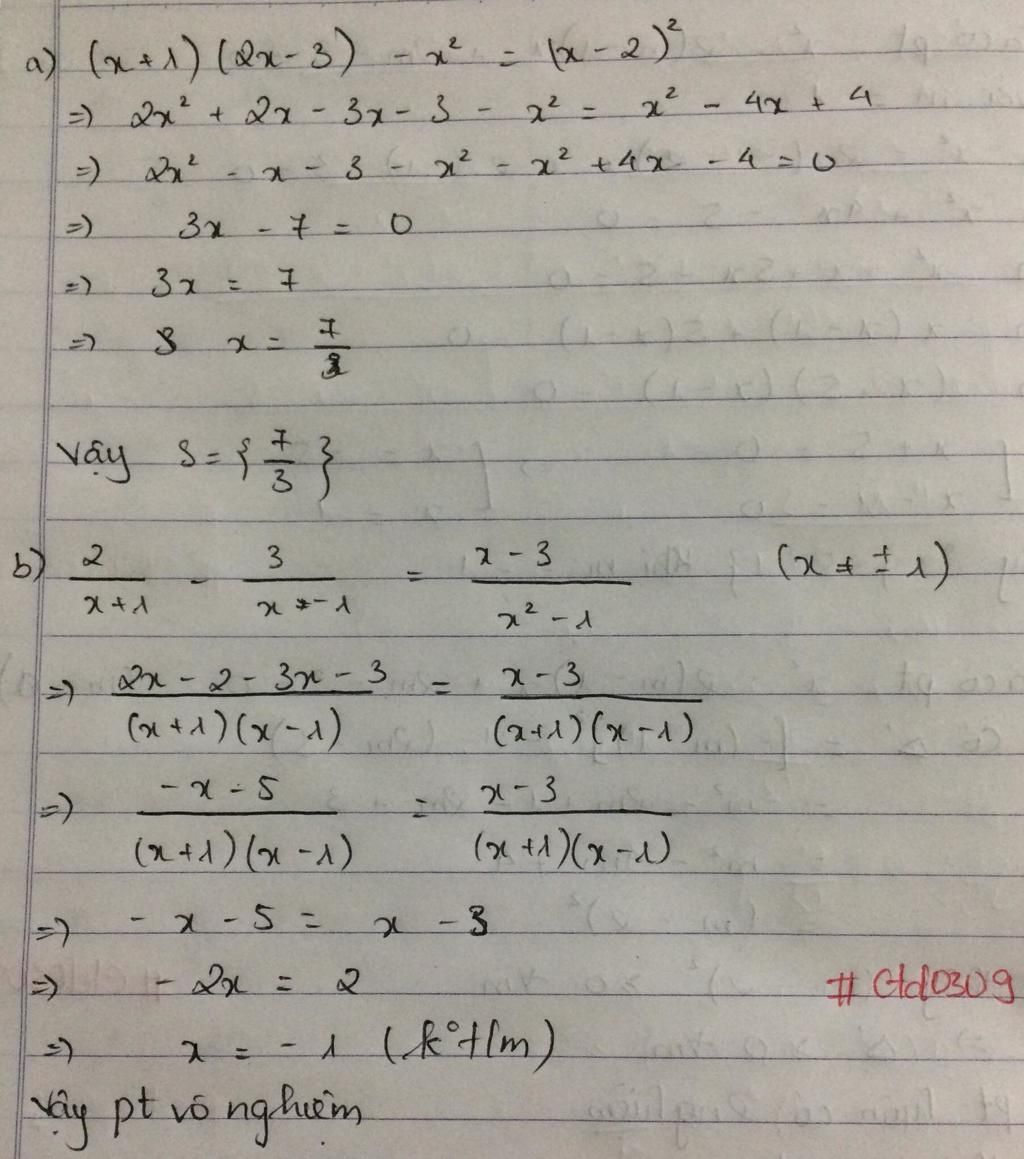 a) (x+1)(2x-3) - x² = (x-2)²
=> 2x² + 2x - 3x - 3 - x² = x² - 4x + 4
=> 2x² - x - 3 - x² - x² + 4x - 4 = 0
=> 3x - 7 = 0
=> 3x = 7
=> x = 7/3
Vậy S = {7/3}
b) 2/(x+1) - 3/(x-1) = (x-3)/(x²-1) (x ≠ ±1)
=> (2x-2-3x-3)/((x+1)(x-1)) = (x-3)/((x+1)(x-1))
=> (-x-5)/((x+1)(x-1)) = (x-3)/((x+1)(x-1))
=> -x - 5 = x - 3
=> -2x = 2
# Gld0309
=> x = -1 (k°t/m)
Vậy pt vô nghiệm